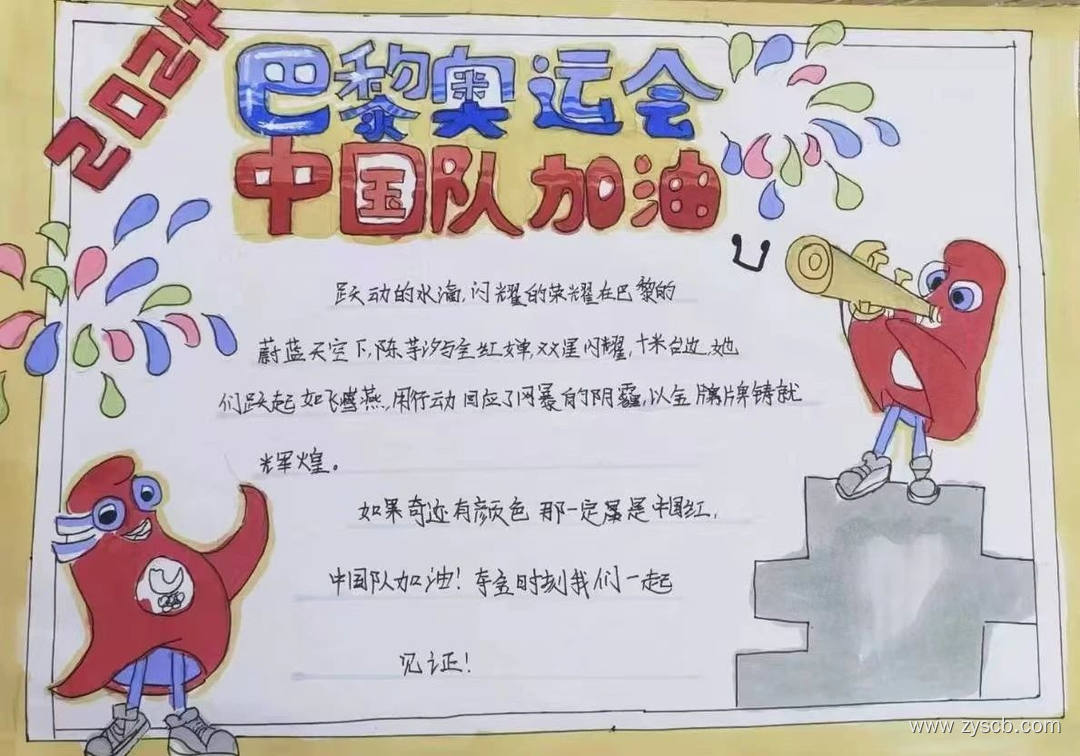 2024
巴黎奥运会
中国队加油
跃动的水滴,闪耀的荣耀在巴黎的
蔚蓝天空下,陈芋汐与全红婵双星闪耀,十米台边,她
们跃起如飞燕,用行动回应了网暴的阴霾,以金牌牌铸就
辉煌。
如果奇迹有颜色 那一定是中国红,
中国队加油!夺金时刻我们一起
见证!
www.zyscb.com